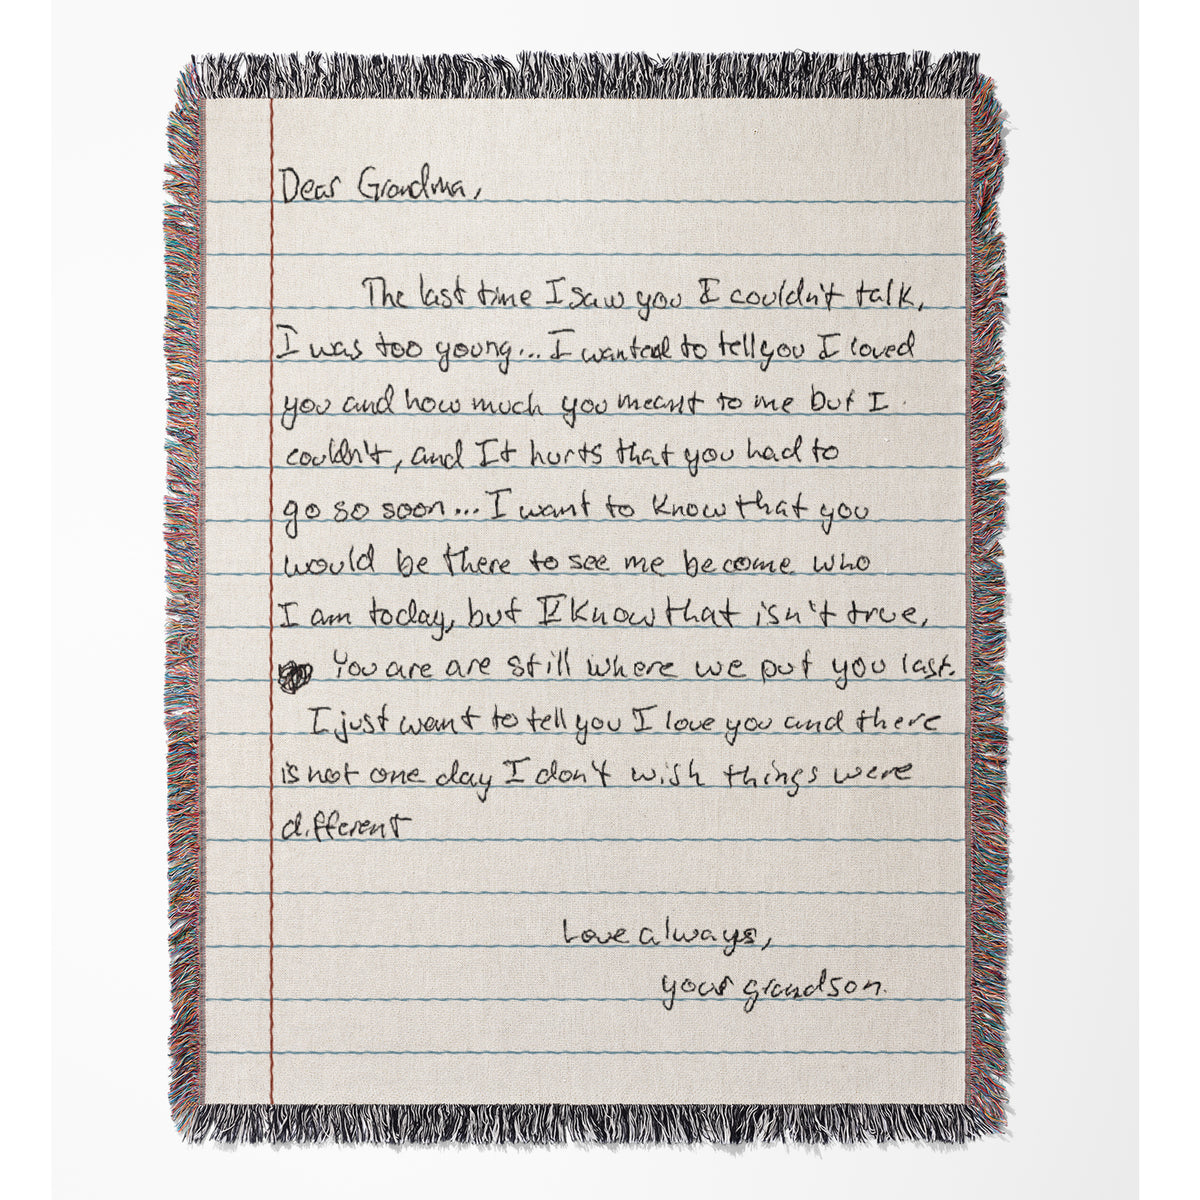 Dear Grandma,
The last time I saw you I couldn't talk,
I was too young... I wanted to tell you I loved
you and how much you meant to me but I
couldn't, and It hurts that you had to
go so soon... I want to know that you
would be there to see me become who
I am today, but I know that isn't true,
You are are still where we put you last.
I just want to tell you I love you and there
is not one day I don't wish things were
different
Love always,
your grandson.